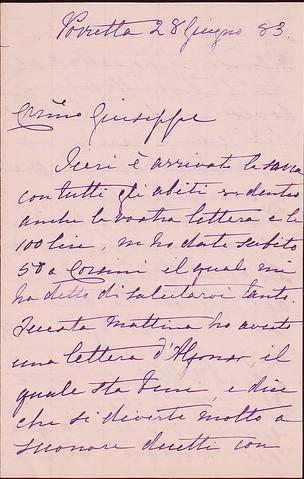 Porretta 28 Giugno 83.
Cmo Giuseppe
Ieri è arrivata la
con tutti gli abiti e dentro
anche la vostra lettera e le
100 lire, ne ho date subito
50 a Corsini il quale mi
ha detto di salutarvi tanto.
Questa mattina ho avuto
una lettera d'Alfonso, il
quale sta bene, e dice
che si diverte molto a
suonare duetti con